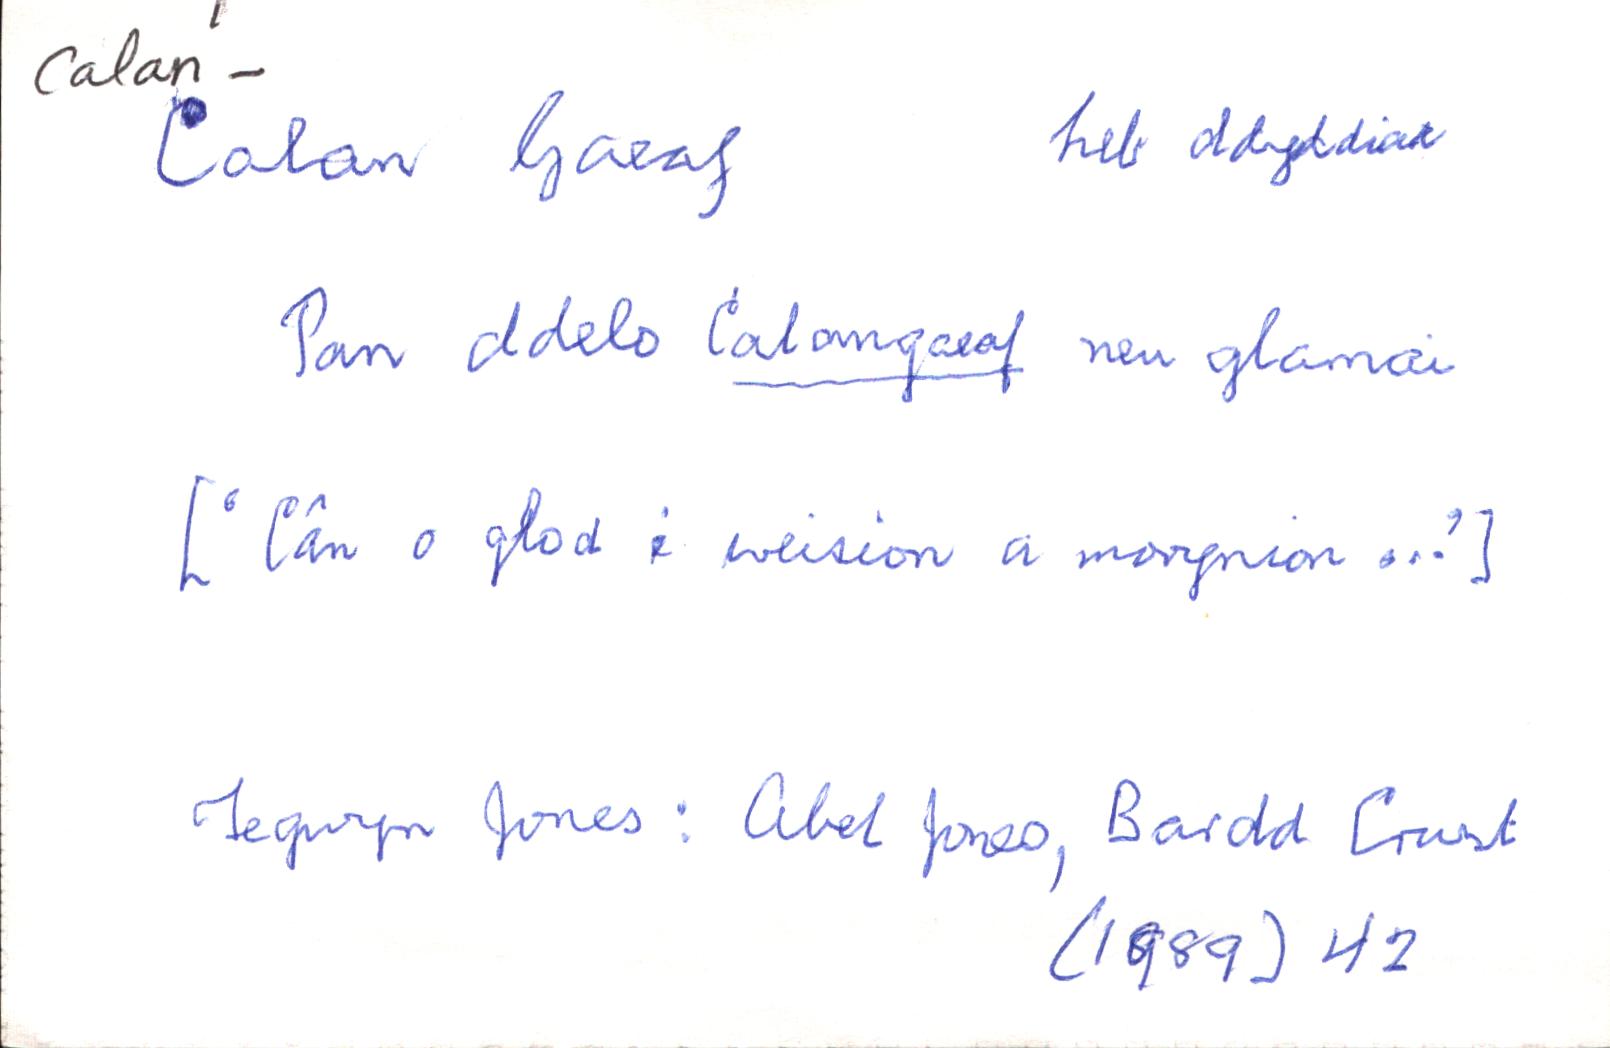 Calan -
Calan Gaeaf heb ddyddiad
Pan ddelo Calangaeaf neu glamai
['Cân o glod i weision a morynion ...']
Tegwyn Jones: Abel Jones, Bardd Crwst
(1989) 42